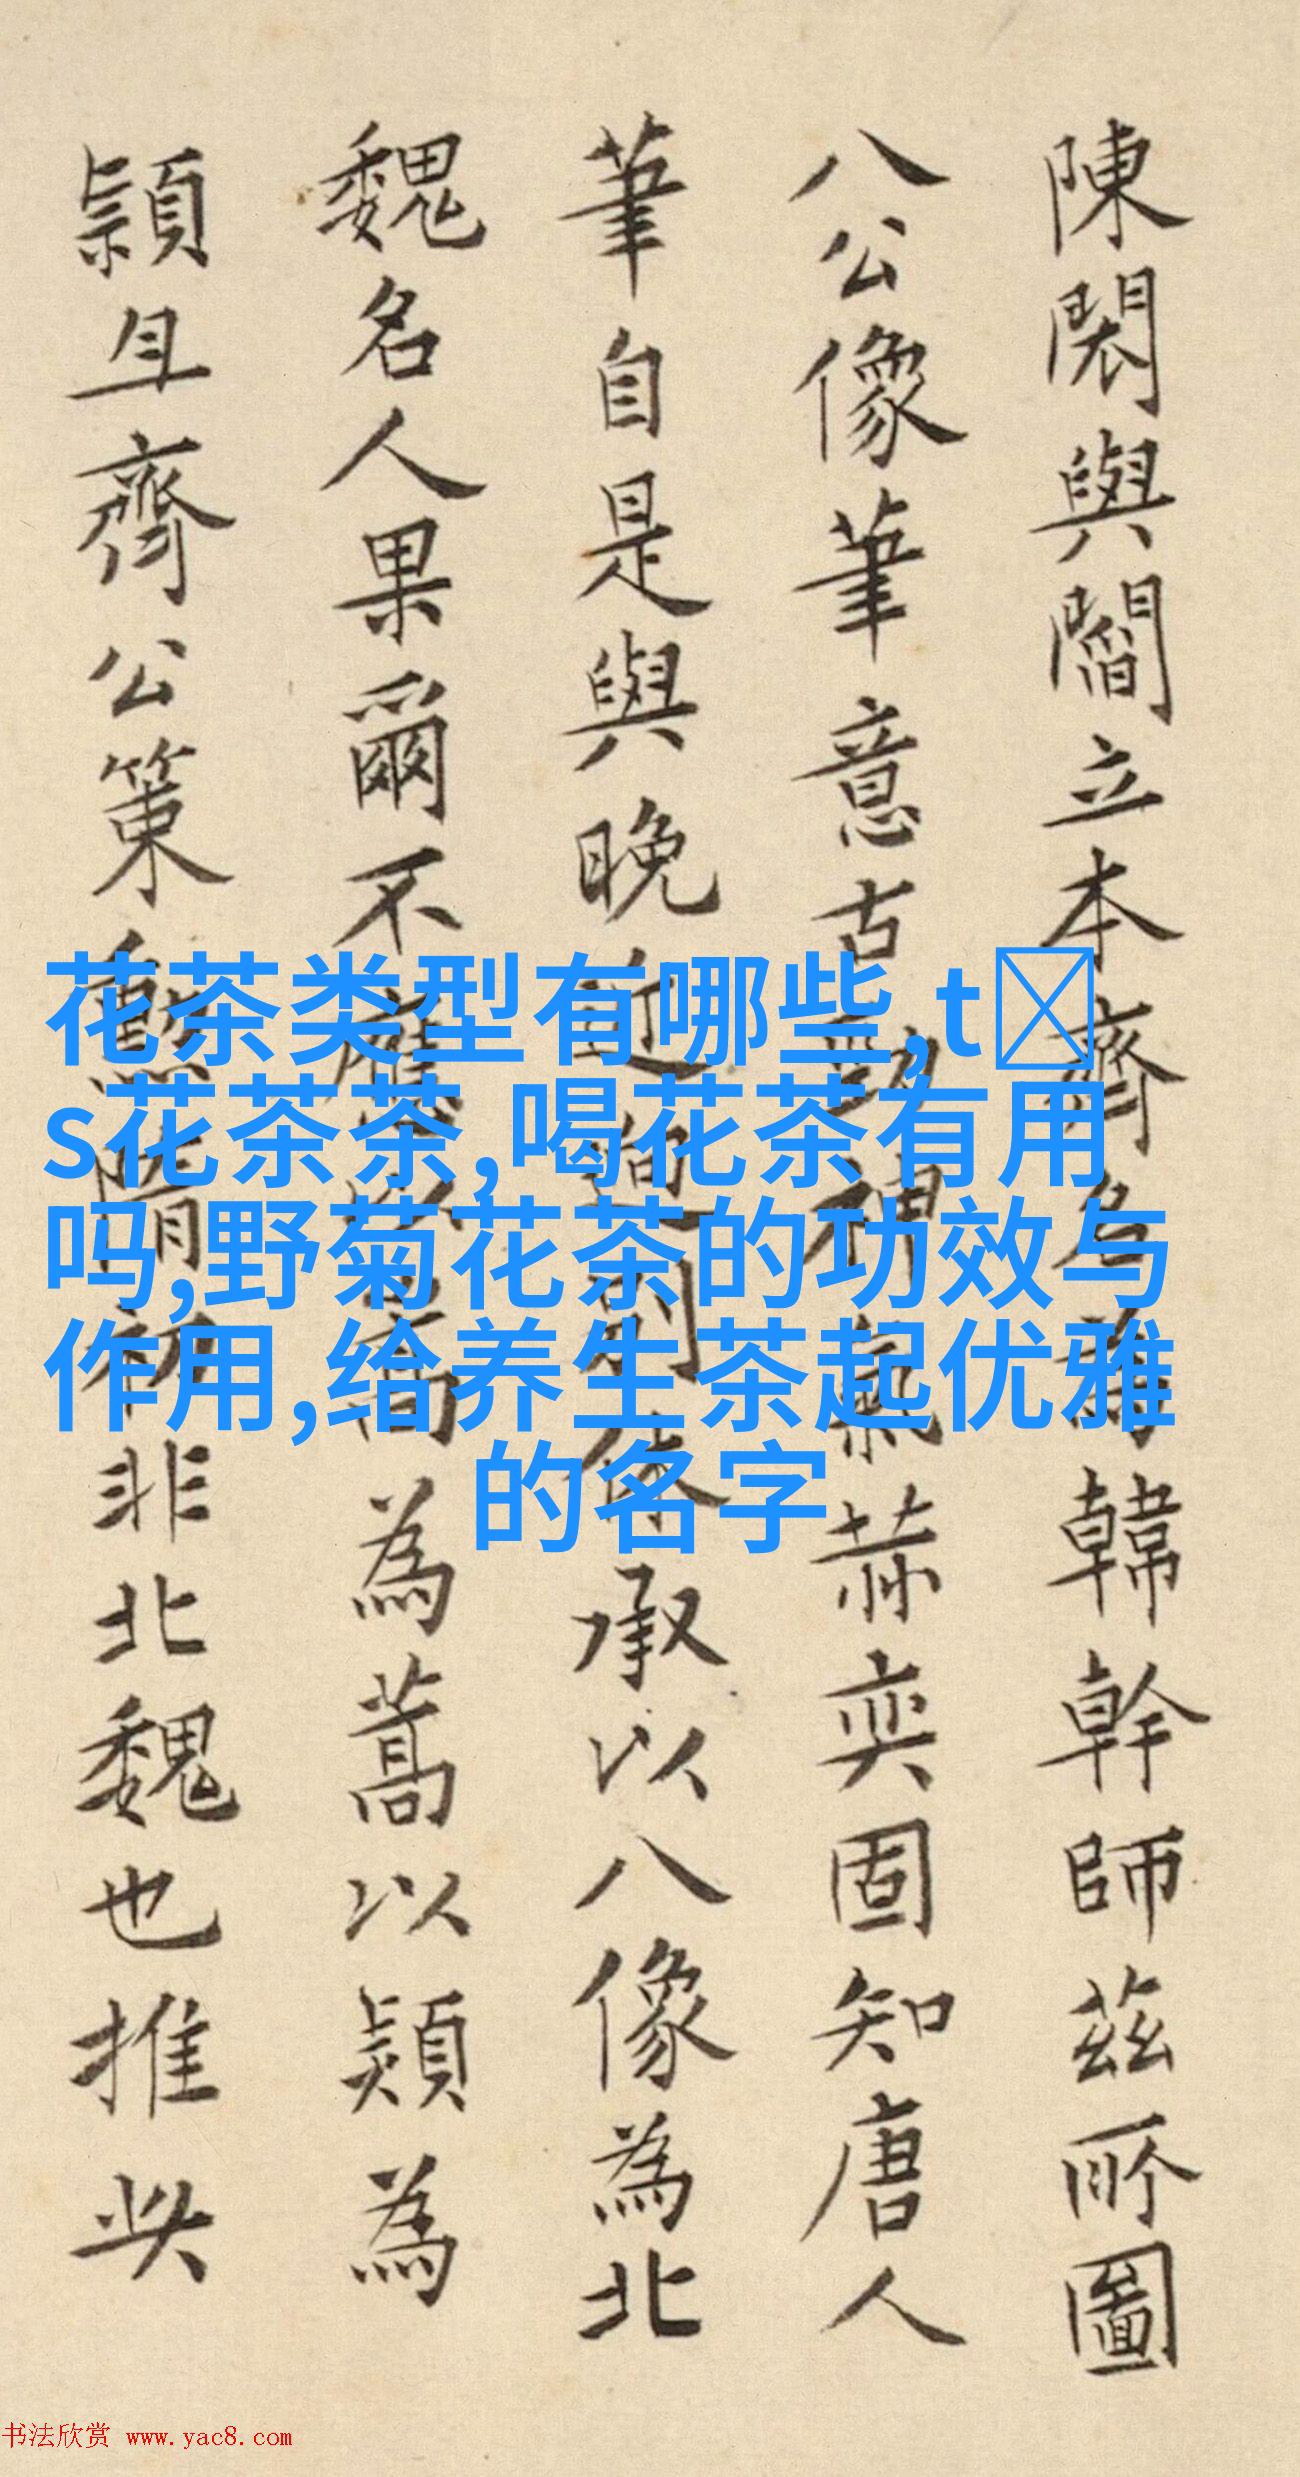 陳閎與閻立本齊名為韓幹師茲所圖
八公像筆意古勁神氣赫奕固知唐人
筆自是與晚近迥別承以八像為北
魏名人果爾不應以高為蒿以熲為
頴且齊公策勳隋初非北魏也推
花茶类型有哪些,t
s花茶茶,喝花茶有用
吗,野菊花茶的功效与
作用,给养生茶起优雅
的名字
书法欣赏 www.yac8.com